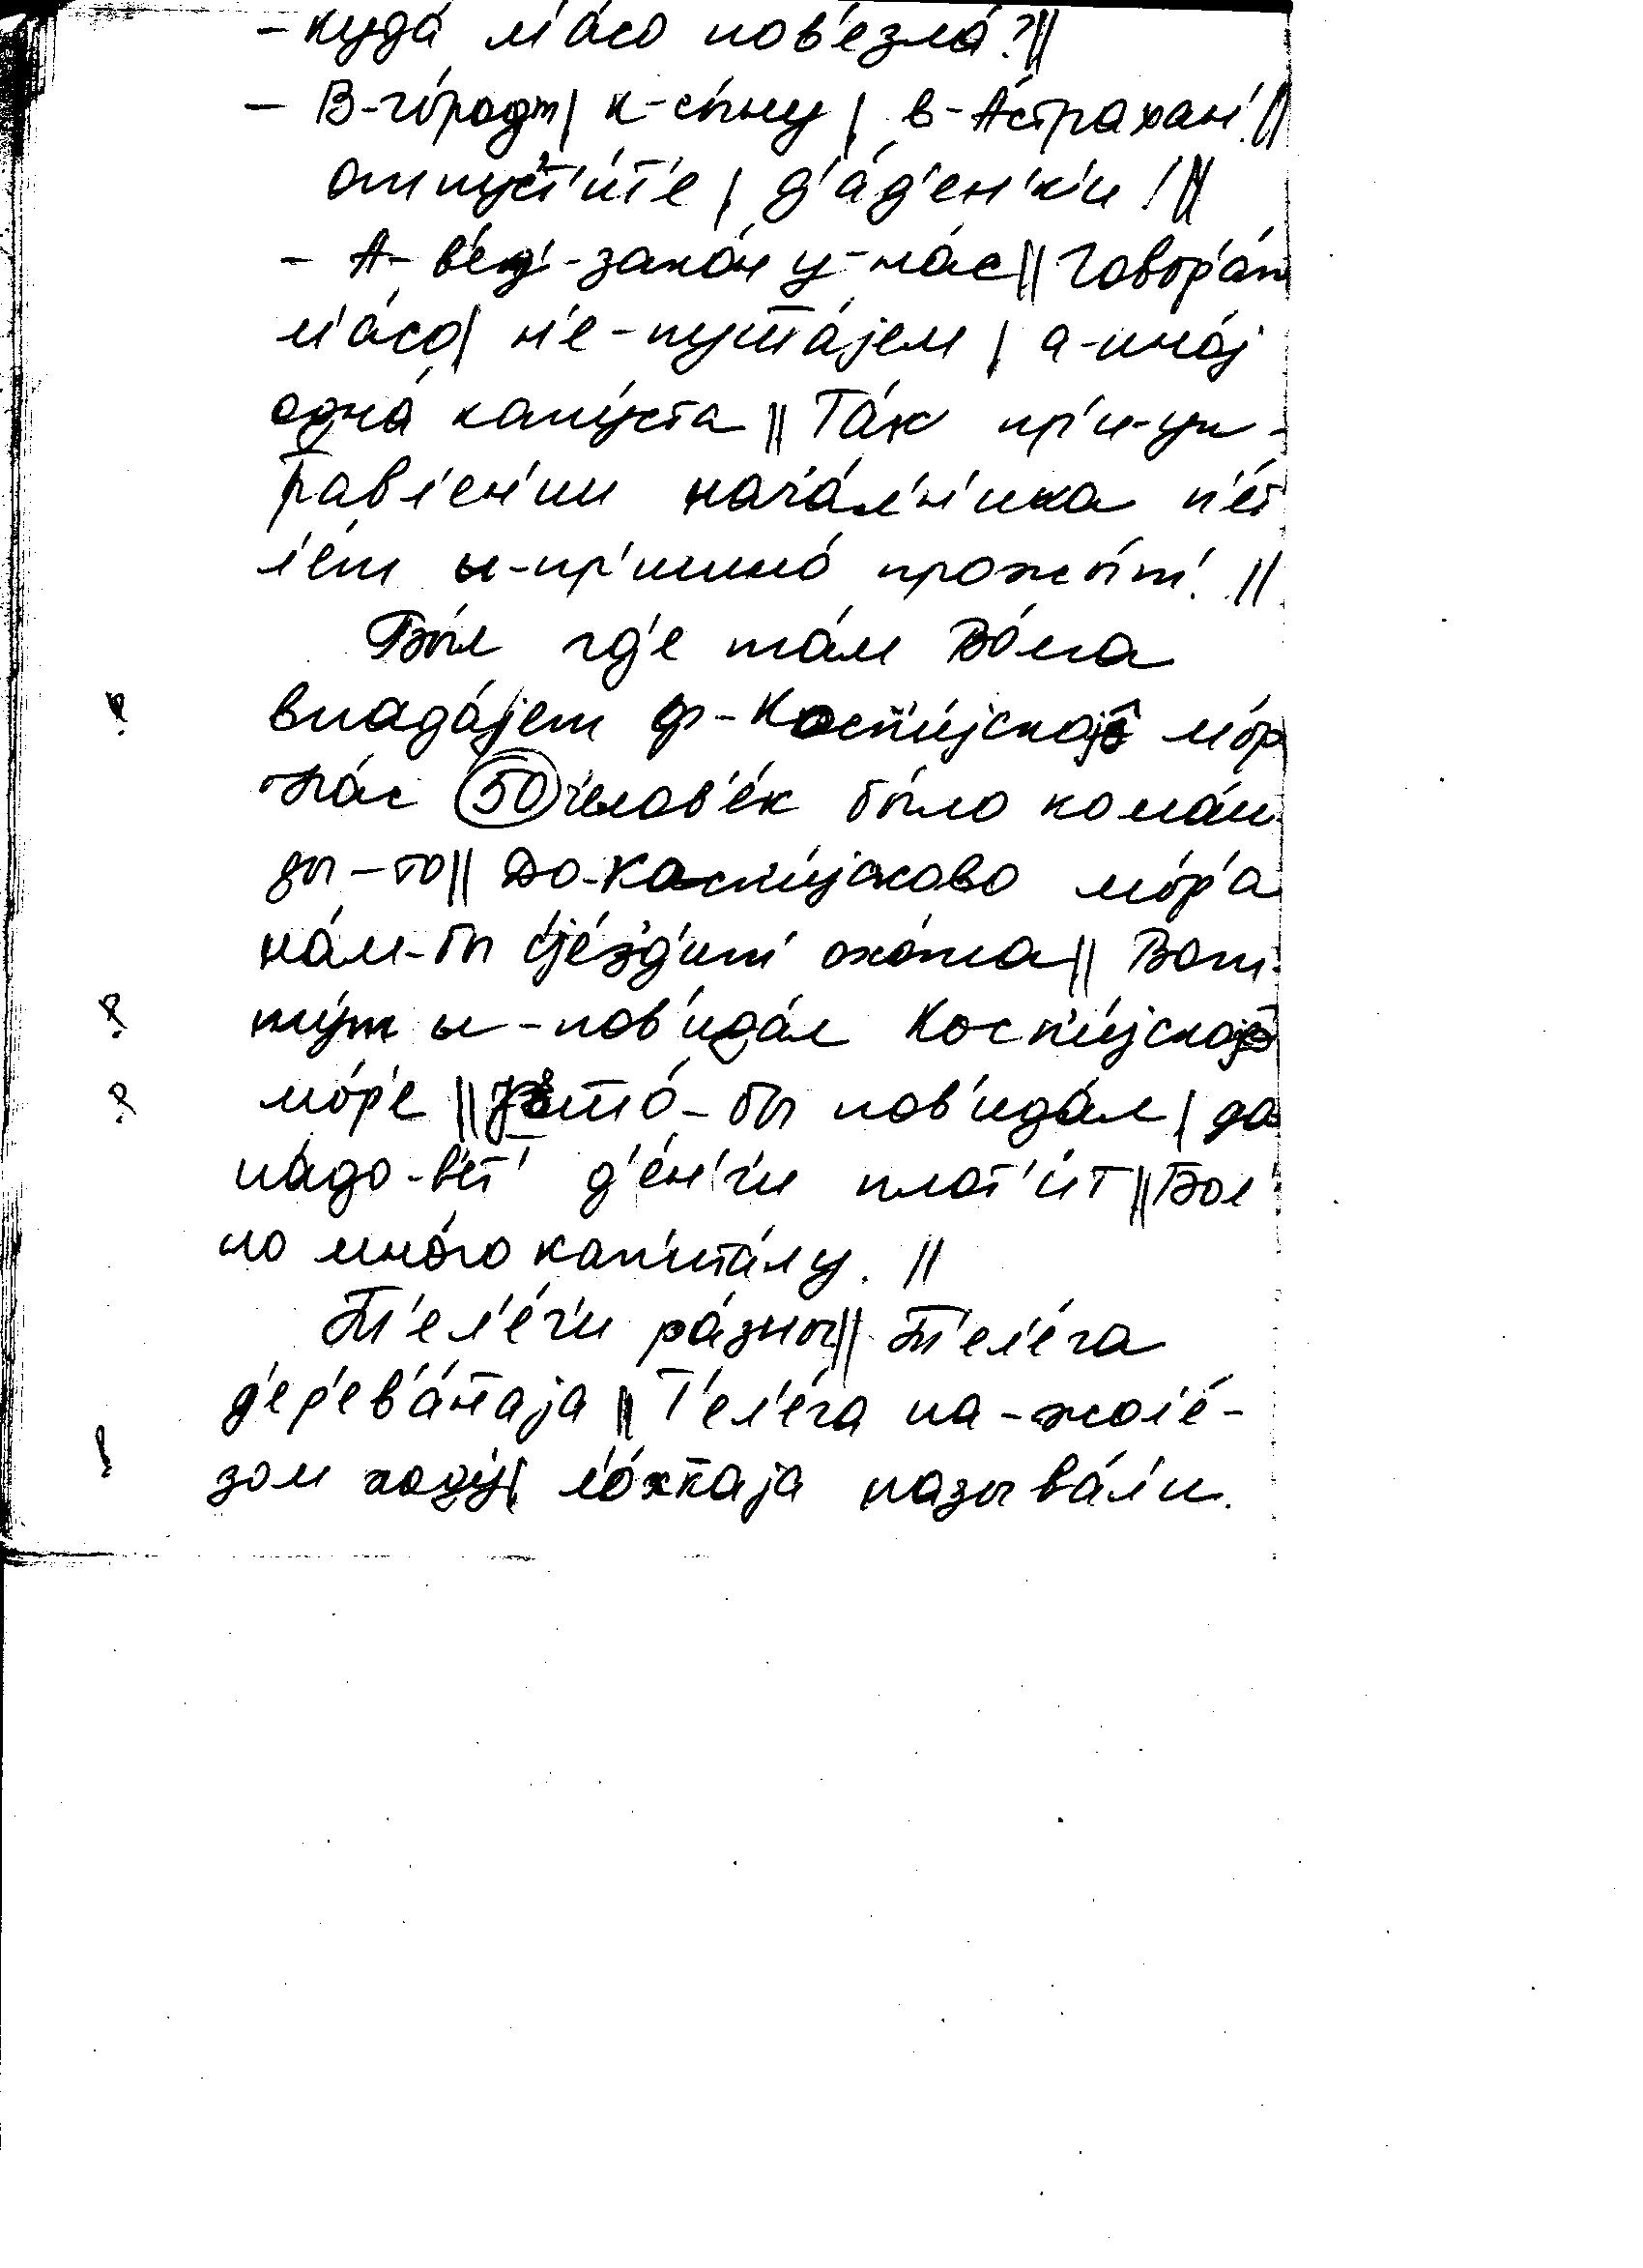 – куда́ м'а́со пов'езла́? ||
– В-го́родт | к-сы́ну | в-А́страхан'. ||
отпуст'и́т'е | д'а́д'ен'к'и! ||
– А-в'ед'-зако́н у-на́с || Говор'а́т
м'а́со | н'е-пуш̅а́јем | а-мно́ј
одна́ капу́ста || Та́к пр'и-уп-
равл'ен'ии нач'а́л'н'ика п'е́т'
л'е́т ы-пр'ишло́ прожы́т'. ||
Бы́л гд'е та́м Во́лга
впада́јет ф-Касп'и́јској мо́р
На́с 50 ч'елов'е́к бы́ло кома́н
ды-то || До-Касп'и́јсково мо́р'а
на́м-бы је́зд'ит' охо́та || Вот
ту́т ы-пов'ида́л Касп'и́јској
мо́р'е || што́-бы пов'ида́л | да
на́до-в'ет' д'е́н'г'и плат'и́т || Бол'
но мно́го кап'ита́лу. ||
Т'ел'е́г'и ра́зны || Т'ел'е́га
д'ер'ев'а́наја || Т'ел'е́га на-жол'е́-
зом ходу́ | л'о́хкаја называ́л'и.